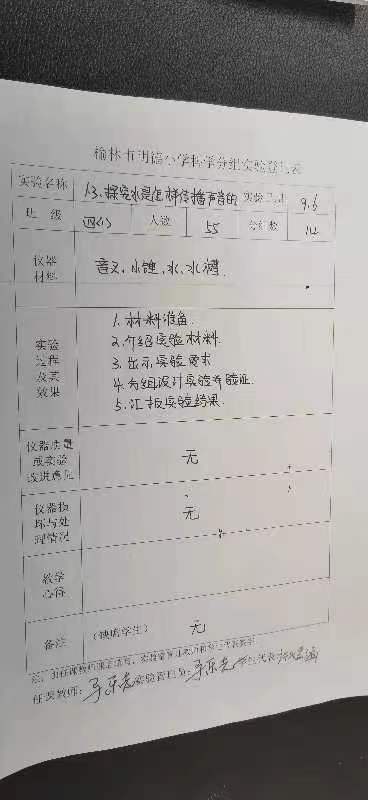 榆林市明德小学科学分组实验登记表
实验名称 13.探究水是怎样传播声音的 实验日期 9.6
班 级 四(1) 人数 55 分组数 14
仪器
材料
音叉、小锤、水、水槽
实验
过程
及其
效果
1.材料准备
2.介绍实验材料
3.出示实验要求
4.分组设计实验并验证
5.汇报实验结果
仪器质量
或实验
改进意见
无
仪器损
坏与处
理情况
无
教学
心得
备注
(缺席学生) 无
任课教师: 实验管理员: 学生代表